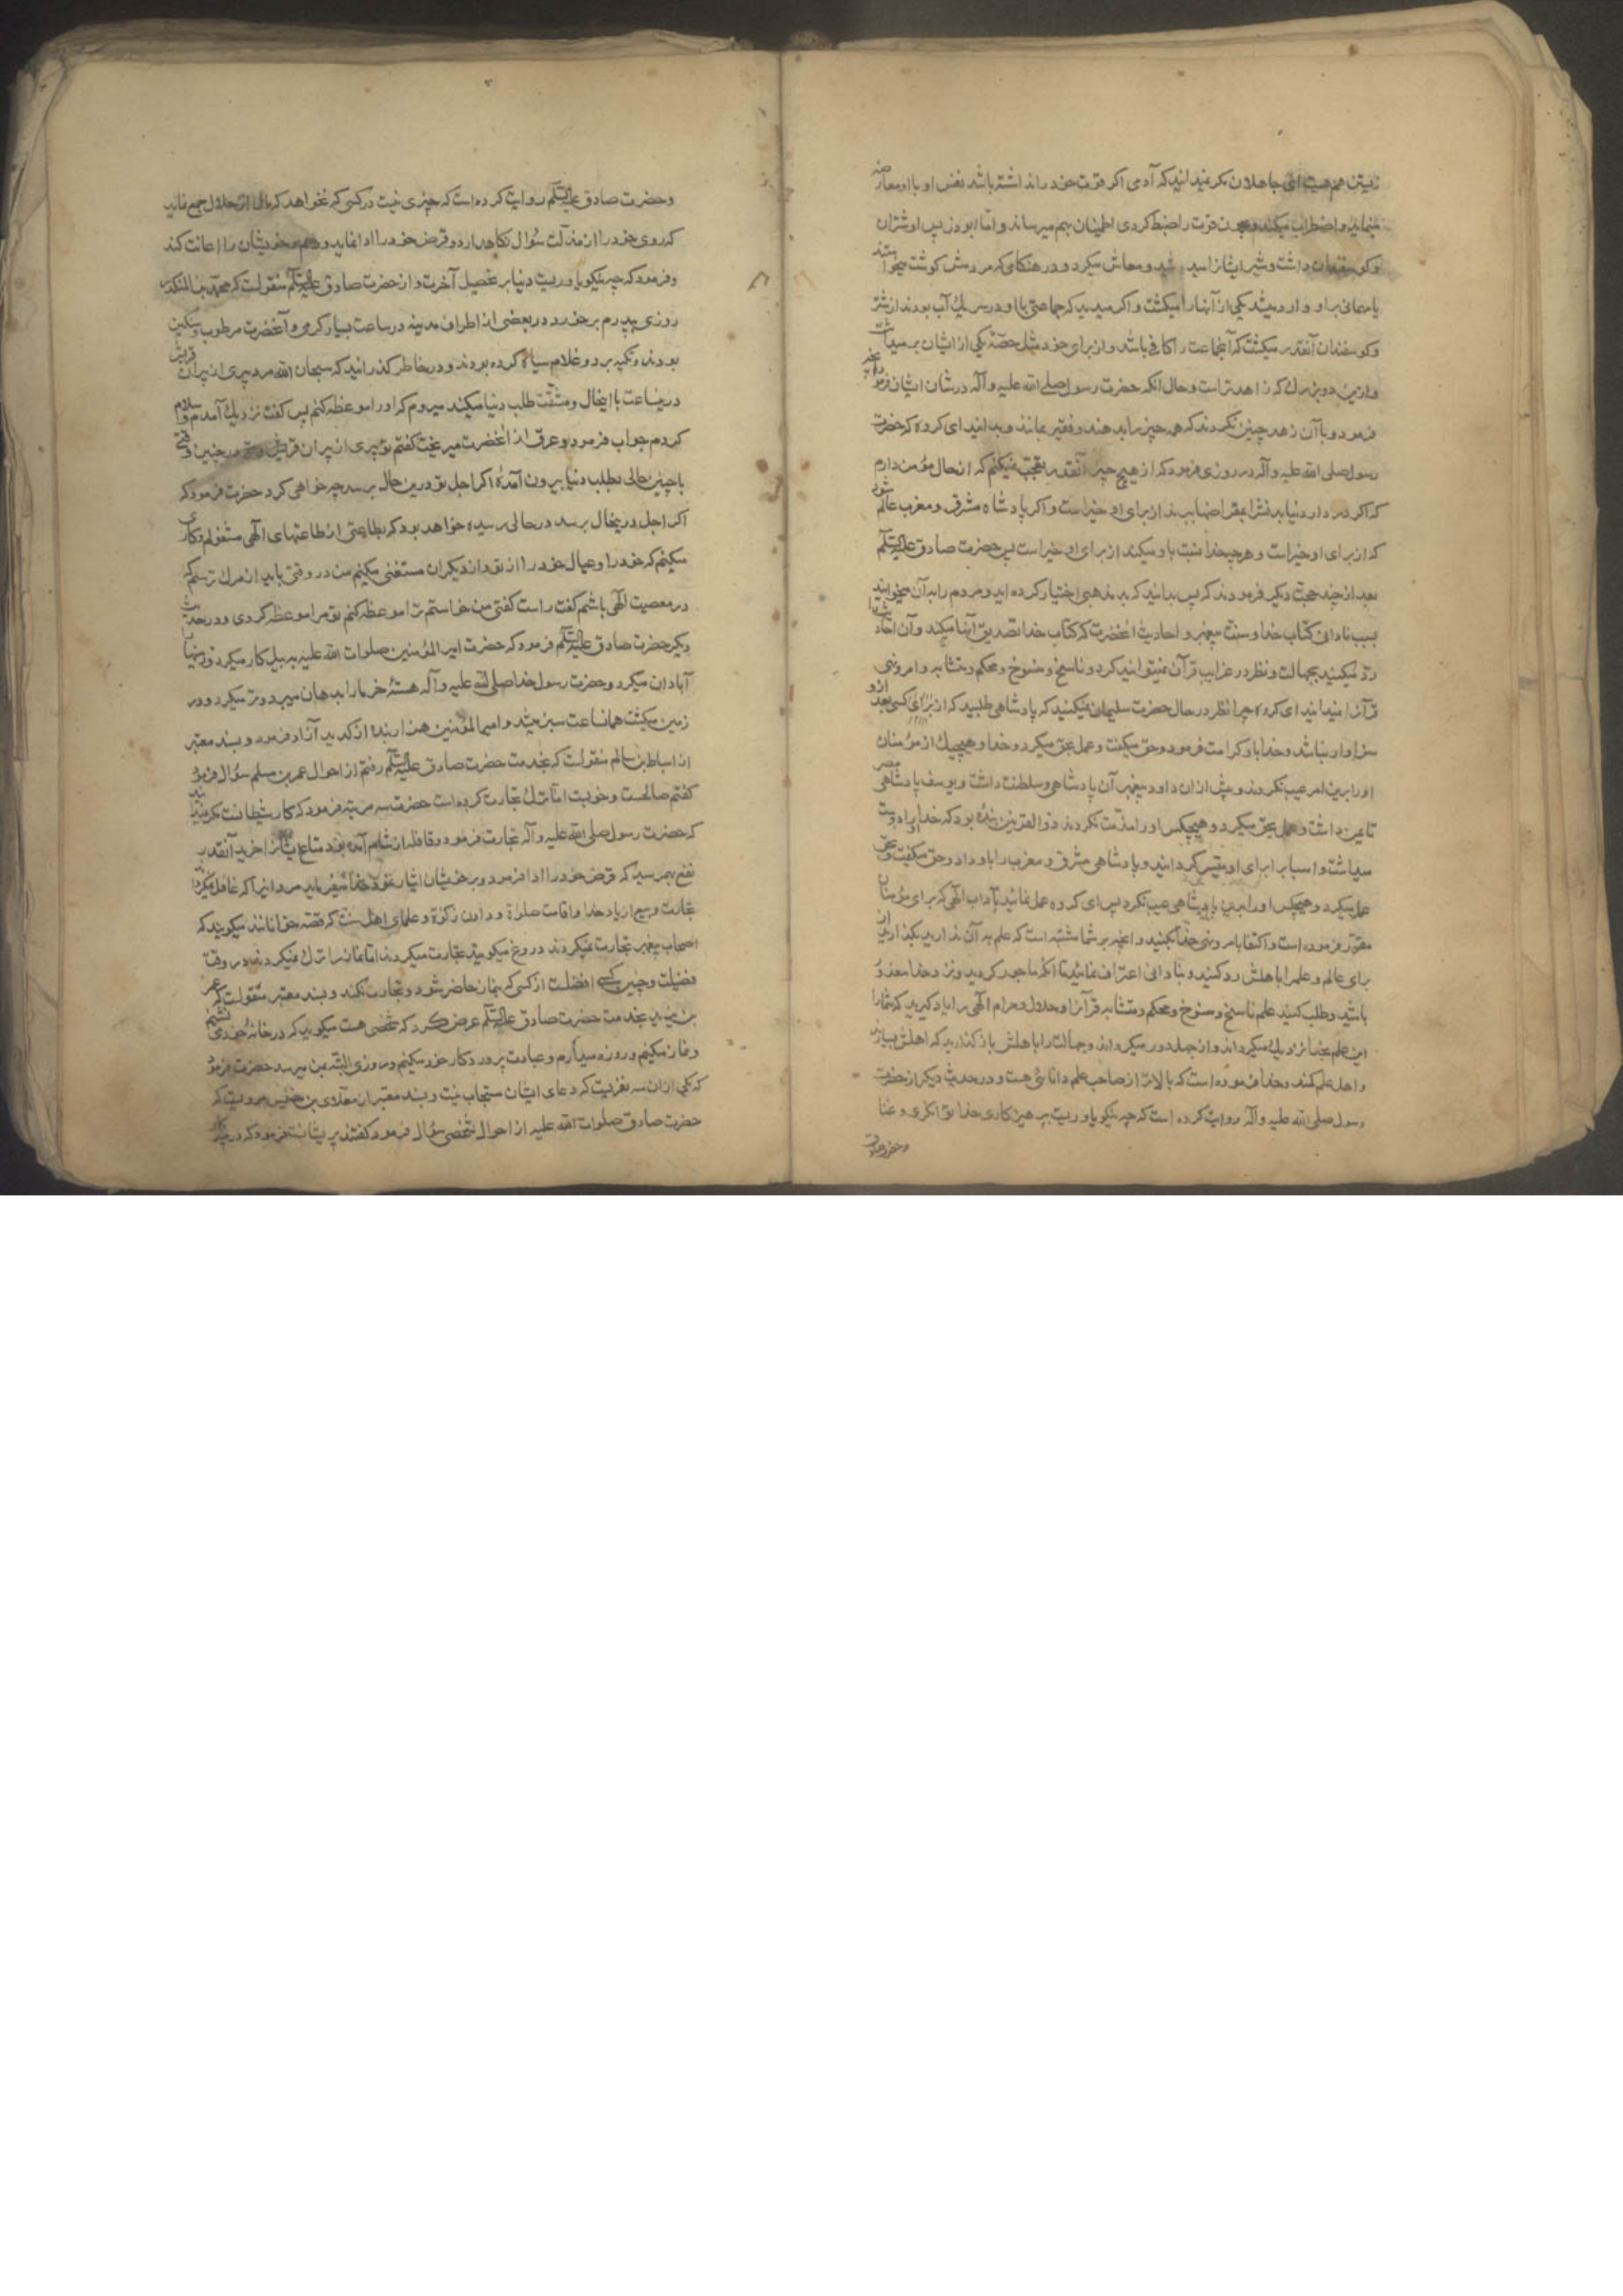 زیستن هم هست ای جاهلان مگر نمیدانید که آدمی اگر قوت خود را نداشته باشد نفس او با او معارضه
مینماید و اضطراب میکند و چون قوت را ضبط کردی اطمینان بهم میرساند و اما ابوذر پس او شتران
و گوسفندان داشت و شیر ایشانرا میدوشید و معاش میکرد و در هنگامی که مردمش گوشت میخواستند
یا مهمانی بر او وارد میشد یکی از آنها را میکشت و اگر میدید که جماعتی با او در سر یک آب بودند از شتر
و گوسفندان آنقدر میکشت که آنجماعت را کافی باشد و از برای خود مثل حصّهٔ یکی از ایشان بر میداشت
و ازین دو بزرگ که زاهدتر است و حال انکه حضرت رسول صلی الله علیه و آله در شان ایشان فرمود
فرمود و با آن زهد چنین نکردند که همه چیز را بدهند و فقیر بمانند و بدانید ای گروه که حضرت
رسول صلی الله علیه و آله در روزی فرمود که از هیچ چیز آنقدر تعجب نمیکنم که از حال مؤمن دارم
که اگر در دار دنیا بدنش را بمقراضها ببرند از برای او خیر است و اگر پادشاه مشرق و مغرب عالم شود
که از برای او خیر است و هر چه خدا نسبت باو میکند از برای او خیر است پس حضرت صادق علیه السلم
بعد از چند حجت دیگر فرمودند که پس بدانید که بد مذهبی اختیار کرده اید و مردم را به آن میخوانید
بسبب نادانی کتاب خدا و سنت پیغمبر و احادیث آنحضرت که کتاب خدا تصدیق آنها میکند و آن احادیث را
رد میکنید بجهالت و نظر در غرایب قرآن نمیتوانید کرد و ناسخ و منسوخ و محکم و متشابه و امر و نهی
قرآن را نمیدانید ای گروه چرا نظر در حال حضرت سلیمان نمیکنید که پادشاهی طلبید که از برای کسی بعد از او
سزاوار نباشد و خدا باو کرامت فرمود و حق میگفت و عمل بحق میکرد و خدا و هیچیک از مؤمنان
او را برین امر عیب نکردند و پیش ازان داود پیغمبر آن پادشاهی و سلطنت داشت و یوسف پادشاهی مصر
تا یمن داشت و عمل بحق میکرد و هیچکس او را مذمت نکردند ذوالقرنین بندهٔ بود که خدا او را دوست
میداشت و اسباب را برای او میسر گردانید و پادشاهی مشرق و مغرب را باو داد و حق میگفت و بحق
عمل میکرد و هیچکس او را بدین پادشاهی عیب نکرد پس ای گروه عمل نمائید بآداب الهی که برای مؤمنان
مقرر فرموده است و اکتفا بامر و نهی خدا بکنید و انچه بر شما مشتبه است که علم به آن ندارید بگذارید از
برای عالم و علم را باهلش رد کنید و بنادانی اعتراف نمائید تا انکه ماجور گردید و نزد خدا معذور
باشید و طلب کنید علم ناسخ و منسوخ و محکم و متشابه قرآن را و حلال و حرام الهی را یاد گیرید که شما را
این علم بخدا نزدیک میگرداند و از جهل دور میگرداند و جهالت را باهلش باز گذارید که اهلش بسیارند
و اهل علم کمند و خدا فرموده است که بالاتر از صاحب علم دانائی هست و در حدیث دیگر از حضرت
رسول صلی الله علیه و آله روایت کرده است که چه نیکو یاوریست بر پرهیزکاری خدا توانگری و غنا
و حضرت صادق
و حضرت صادق علیه السلم روایت کرده است که چیزی نیست در کسی که نخواهد که مالی از حلال جمع نماید
که روی خود را از مذلت سؤال نگاهدارد و قرض خود را ادا نماید و هم خویشان را اعانت کند
و فرمود که چه نیکو یاوریست دنیا بر تحصیل آخرت و از حضرت صادق علیه السلم منقولست که محمد بن المنکدر
روزی پدرم برخورد در بعضی از اطراف مدینه در ساعت بسیار گرمی و آنحضرت مرطوب و سنگین
بودند و تکیه بر دو غلام سیاه کرده بودند و در خاطر گذرانید که سبحان الله مرد پیری از پیران قریش
درین ساعت با اینحال و مشقت طلب دنیا میکند میروم که او را موعظه کنم پس گفت نزدیک آمدم و سلام
کردم جواب فرمود و عرق از آنحضرت میریخت گفتم تو پیری از پیران قریش در چنین وقتی
با چنین حالی بطلب دنیا بیرون آمدهٔ اگر اجل تو درین حال برسد چه خواهی کرد حضرت فرمود که
اگر اجل درینحال برسد در حالی رسیده خواهد بود که بطاعتی از طاعتهای الهی مشغولم و کاری
میکنم که خود را و عیال خود را از تو و از دیگران مستغنی میکنم من در وقتی باید از مرگ ترسم که
در معصیت الهی باشم گفت راست گفتی من خواستم ترا موعظه کنم تو مرا موعظه کردی و در حدیث
دیگر حضرت صادق علیه السلم فرمود که حضرت امیر المؤمنین صلوات الله علیه به بیل کار میکرد و زمینها را
آبادان میکرد و حضرت رسول خدا صلی الله علیه و آله هستهٔ خرما را بدهان میبرد و تر میکرد و در
زمین میکشت همانساعت سبز میشد و امیر المؤمنین هزار بنده از کد ید آزاد فرمود و بسند معتبر
از اسباط بن سالم منقولست که بخدمت حضرت صادق علیه السلم رفتم از احوال عمر بن مسلم سؤال فرمود
گفتم صالحست و خوبست اما ترک تجارت کرده است حضرت سه مرتبه فرمود که کار شیطانست مگر نمیداند
که حضرت رسول صلی الله علیه و آله تجارت فرمود و قافلهٔ از شام آمده بود متاع ایشان را خرید آنقدر
نفع بهمرسید که قرض خود را ادا فرمود و بر خویشان ایثار نمود خدا میفرماید مردانی را که غافل نمیکرد
تجارت و بیع از یاد خدا و اقامت صلوة و دادن زکوة و علمای اهل سنت که قصه خوانانند میگویند که
اصحاب پیغمبر تجارت نمیکردند دروغ میگویند تجارت میکردند اما نماز را ترک نمیکردند در وقت
فضیلت و چنین کسی افضلست از کسی که بنماز حاضر شود و تجارت نکند و بسند معتبر منقولست که عمر
بن یزید بخدمت حضرت صادق علیه السلم عرض کرد که شخصی هست میگوید که در خانهٔ خود می نشینم
و نماز میکنم و روزه میدارم و عبادت پروردگار خود میکنم و روزی البته بمن میرسد حضرت فرمود
که یکی ازان سه نفریست که دعای ایشان مستجاب نیست و بسند معتبر از معلی بن خنیس مرویست که
حضرت صادق صلوات الله علیه از احوال شخصی سؤال فرمود گفتند پریشانست فرمود که در چکار